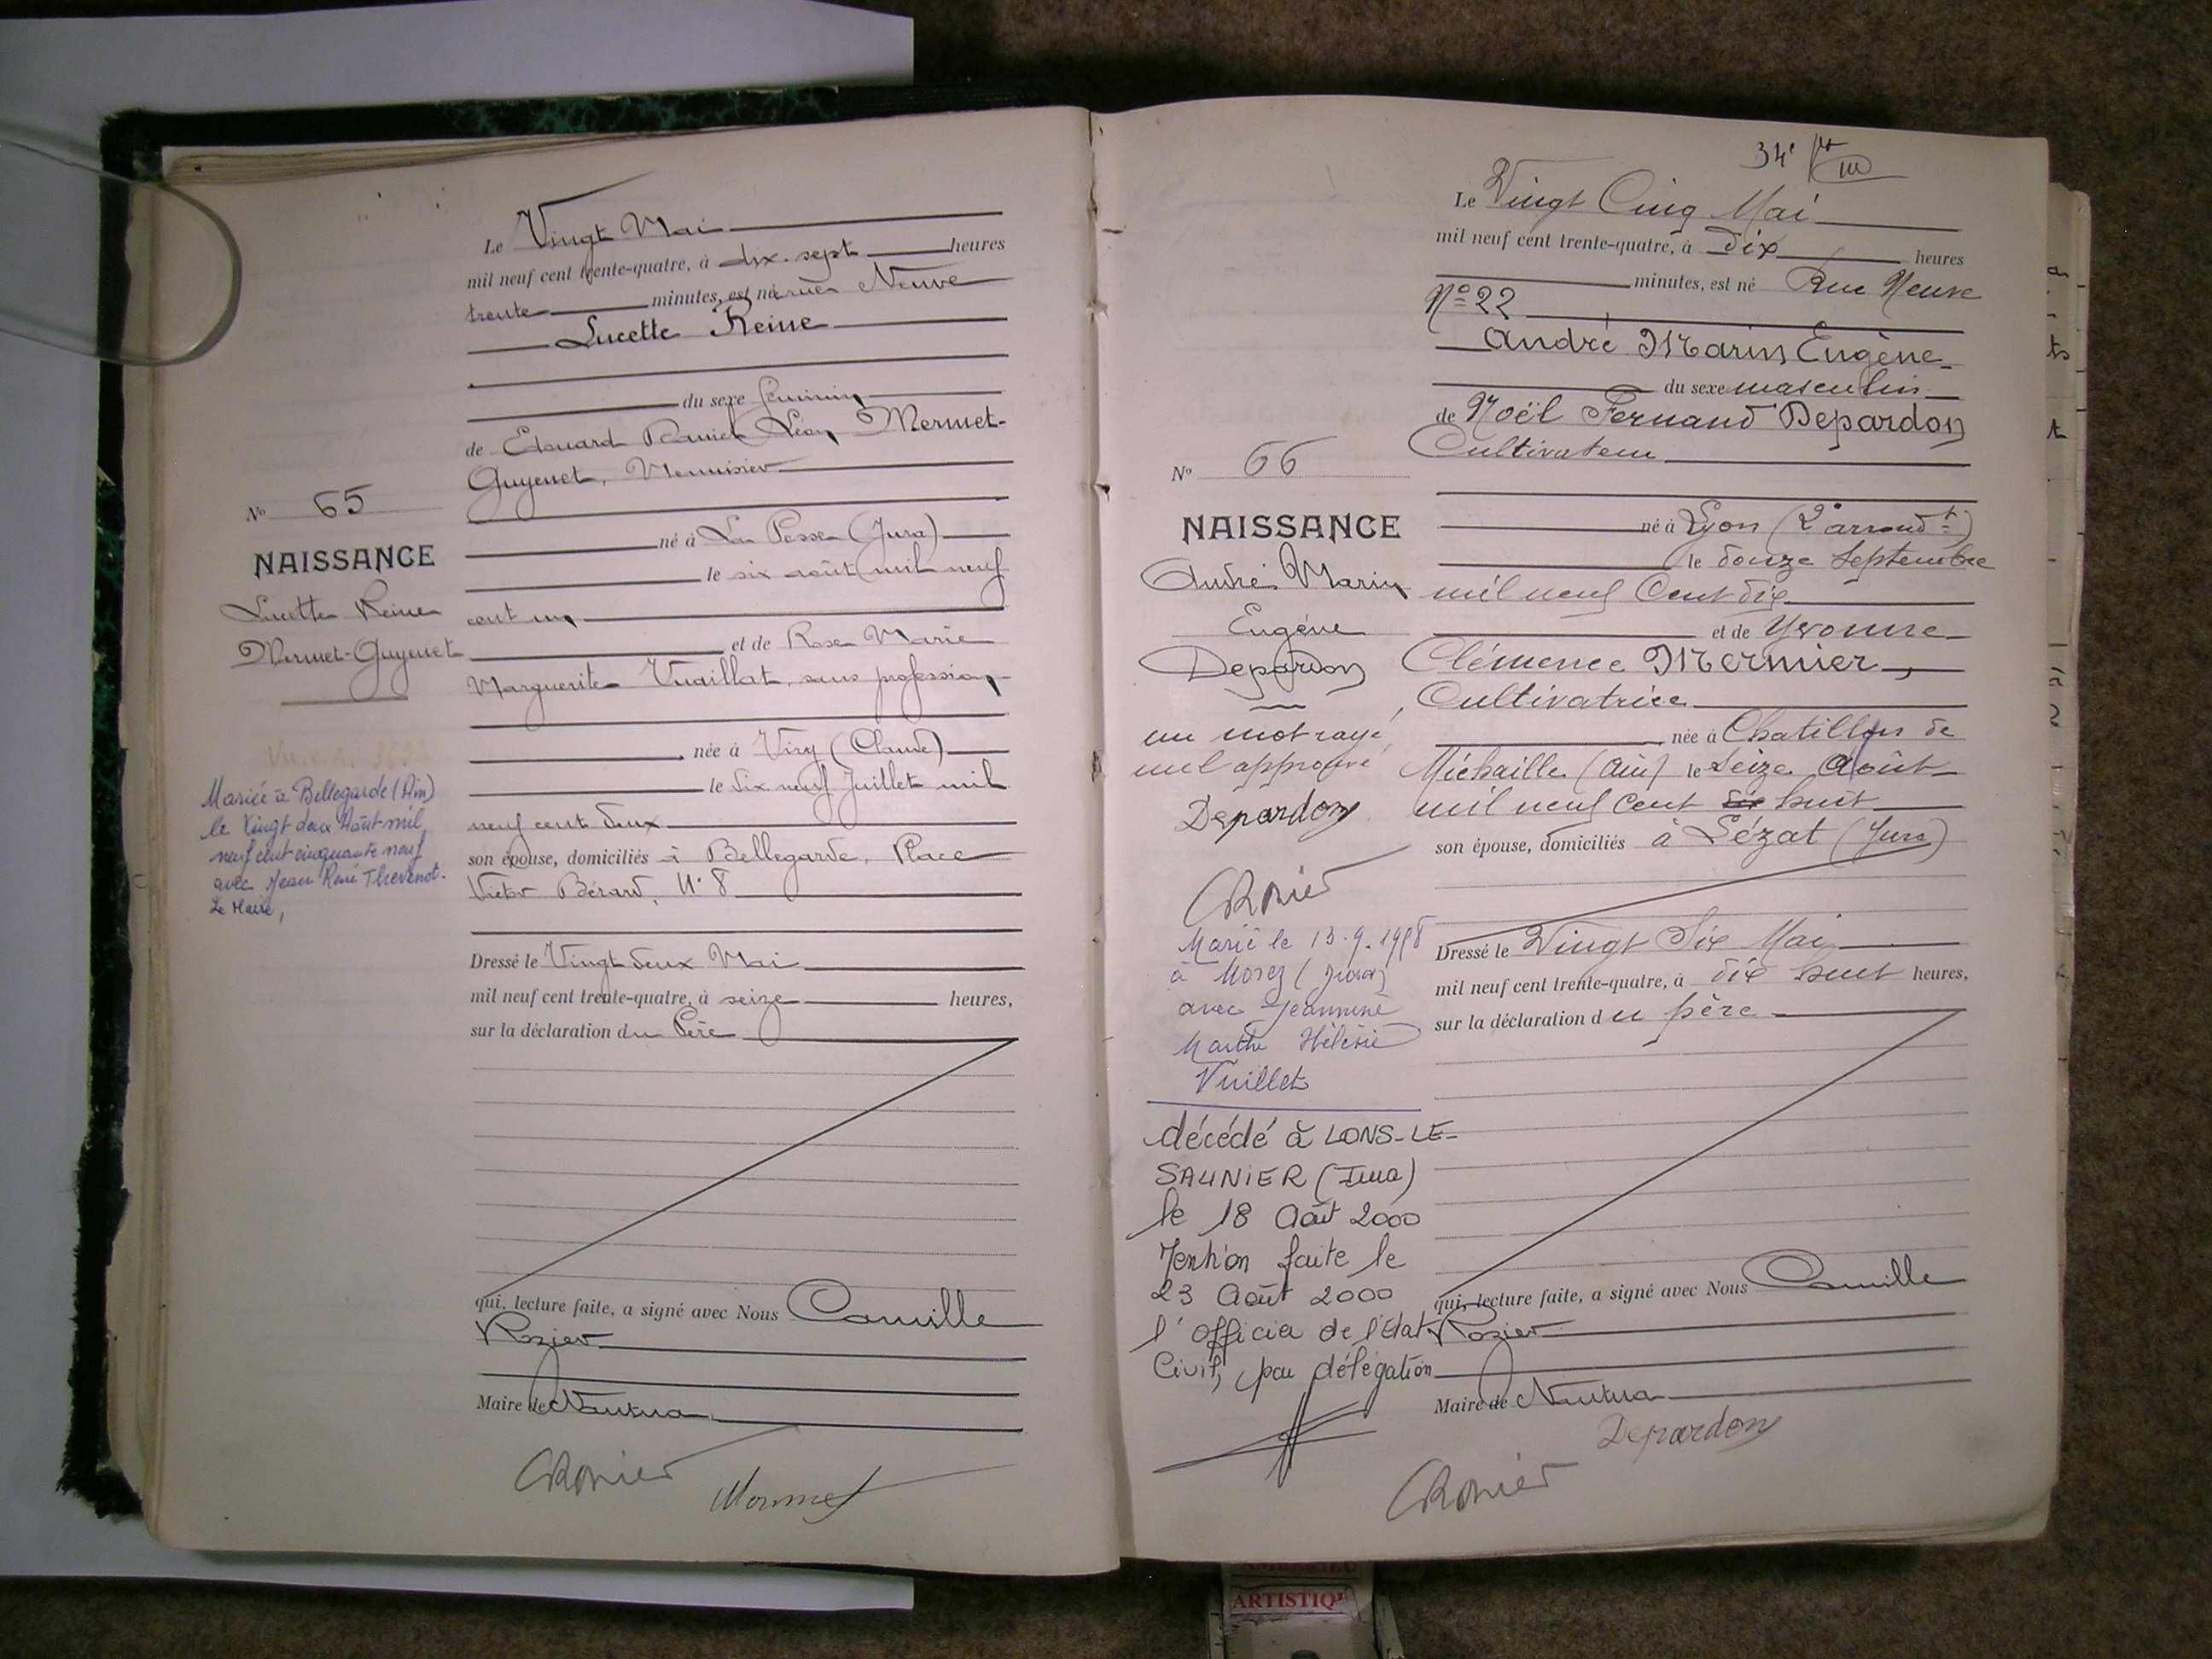 Le Vingt Mai
mil neuf cent trente-quatre, à dix-sept heures
trente minutes, est né rue Neuve
Lucette Reine
du sexe féminin
de Edouard Daniel Léon Mermet-
Guyenet, Menuisier
No 65
NAISSANCE
Lucette Reine
Mermet-Guyenet
né à La Pesse (Jura)
le six août mil neuf
cent un
et de Rose Marie
Marguerite Vuaillat, sans profession
née à Viry (Claude)
le dix neuf Juillet mil
neuf cent deux
son épouse, domiciliés à Bellegarde, Place
Victor Bérard, N° 8
Mariée à Bellegarde (Ain)
le vingt deux Août mil
neuf cent cinquante neuf
avec Jean René Thevenot.
Le Maire,
Dressé le Vingt deux Mai
mil neuf cent trente-quatre, à seize heures,
sur la déclaration du Père
qui, lecture faite, a signé avec Nous Camille
Rozier
Maire de Nantua
CRozier
Mermet
34e
III
Le Vingt Cinq Mai
mil neuf cent trente-quatre, à Dix heures
minutes, est né Rue Neuve
N° 22
André Marin Eugène
du sexe masculin
de Noël Fernand Depardon
Cultivateur
No 66
NAISSANCE
André Marin
Eugène
Depardon
un mot rayé
nul approuvé
Depardon
CRozier
né à Lyon (2e arrondt)
le douze Septembre
mil neuf Cent dix
et de Yvonne
Clémence Mermier,
Cultivatrice
née à Chatillon de
Michaille (Ain) le Seize Août
mil neuf cent six huit
son épouse, domiciliés à Lézat (Jura)
Marié le 13.9.1958
à Morez (Jura)
avec Jeannine
Marthe Hélène
Vuillet
décédé à LONS-LE-
SAUNIER (Jura)
le 18 Août 2000
Mention faite le
23 Août 2000
l'officier de l'Etat
Civil, par délégation
Dressé le Vingt Six Mai
mil neuf cent trente-quatre, à dix huit heures,
sur la déclaration du père
qui, lecture faite, a signé avec Nous Camille
Rozier
Maire de Nantua
Depardon
CRozier
ARTISTIQ